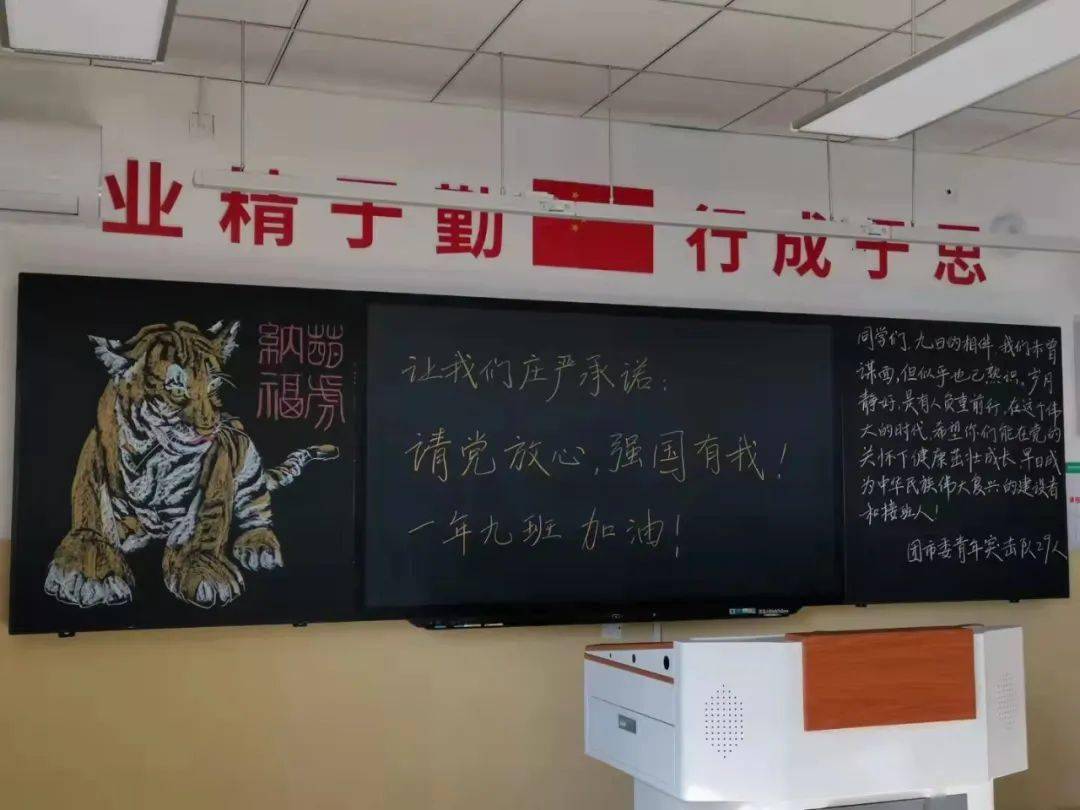 业精于勤 行成于思
萌虎
納福
让我们庄严承诺：
请党放心，强国有我！
一年九班 加油！
同学们，九日的相伴，我们未曾
谋面，但似乎也已熟识。岁月
静好，是有人负重前行，在这个伟
大的时代，希望你们能在党的
关怀下健康茁壮成长，早日成
为中华民族伟大复兴的建设者
和接班人！
团市委青年突击队29人